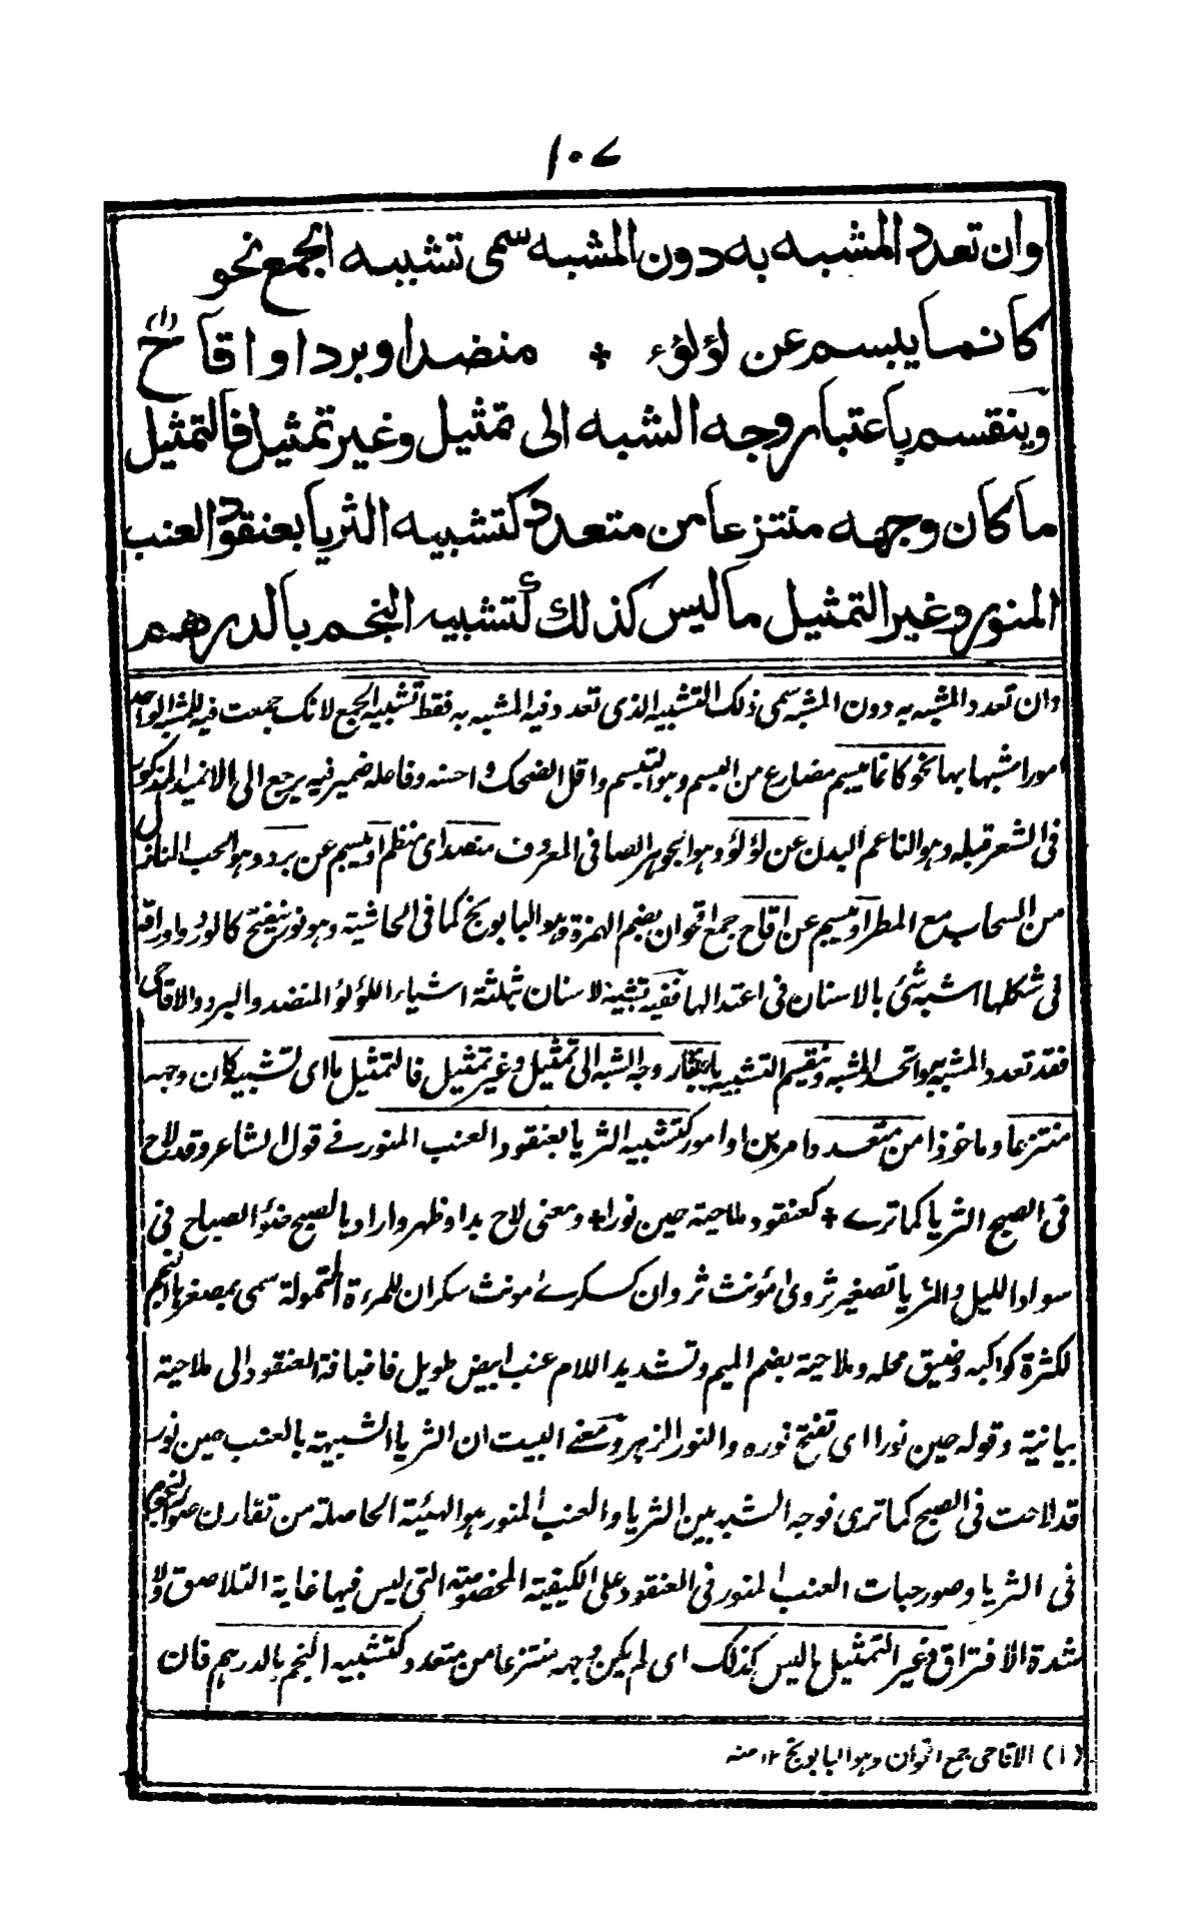 ١٠٧
وان تعدد المشبه به دون المشبه سمى تشبيه الجمع نحو
كانما يبسم عن لؤلؤء ٭ منضد او برد او اقاح (١)
وينقسم باعتبار وجه الشبه الى تمثيل وغير تمثيل فالتمثيل
ما كان وجهه منتزعا من متعدد كتشبيه الثريا بعنقود العنب
المنور وغير التمثيل ما ليس كذلك كتشبيه النجم بالدرهم
وان تعدد المشبه به دون المشبه سمى ذلك التشبيه الذى تعدد فيه المشبه به فقط تشبيه الجمع لانك جمعت فيه للمشبه الواحد
امورا مشبها بها نحو كانما يبسم مضارع من البسم وهو التبسم واقل الضحك واحسنه وفاعله ضمير فيه يرجع الى الاغيد المذكور
فى الشعر قبله وهو الناعم البدن عن لؤلؤ وهو الجوهر الصافى المعروف منضد اى منظم او يبسم عن برد وهو الحب النازل
من السحاب مع المطر او يبسم عن اقاح جمع اقحوان بضم الهمزة وهو البابونج كما فى الحاشية وهو نور ينفتح كالورد واوراقه
فى شكلها اشبه شئ بالاسنان فى اعتدالها ففيه تشبيه الاسنان بثلثة اشياء اللؤلؤ المنضد والبرد والاقاحى
فقد تعدد المشبه به واتحد المشبه وينقسم التشبيه باعتبار وجه الشبه الى تمثيل وغير تمثيل فالتمثيل ما اى تشبيه كان وجهه
منتزعا وماخوذا من متعدد امرين او امور كتشبيه الثريا بعنقود العنب المنور فى قول الشاعر وقد لاح
فى الصبح الثريا كما ترى ٭ كعنقود ملاحية حين نورا ٭ ومعنى لاح بدا وظهر واراد بالصبح ضوء الصباح فى
سواد الليل والثريا تصغير ثروى مؤنث ثروان كسكرى مونث سكران للمرءة المتمولة سمى بمصغرها النجم
لكثرة كواكبه وضيق محله وملاحية بضم الميم وتشديد اللام عنب ابيض طويل فاضافة العنقود الى ملاحية
بيانية وقوله حين نورا اى تفتح نوره والنور الزهر ومعنى البيت ان الثريا الشبيهة بالعنب حين نور
قد لاحت فى الصبح كما ترى فوجه الشبه بين الثريا والعنب المنور هو الهيئة الحاصلة من تقارن صور النجوم
فى الثريا وصور حبات العنب المنور فى العنقود على الكيفية المخصوصة التى ليس فيها غاية التلاصق ولا
شدة الافتراق وغير التمثيل ما ليس كذلك اى لم يكن وجهه منتزعا من متعدد كتشبيه النجم بالدرهم فان
(١) الاقاحى جمع اقحوان وهو البابونج ١٢ منه